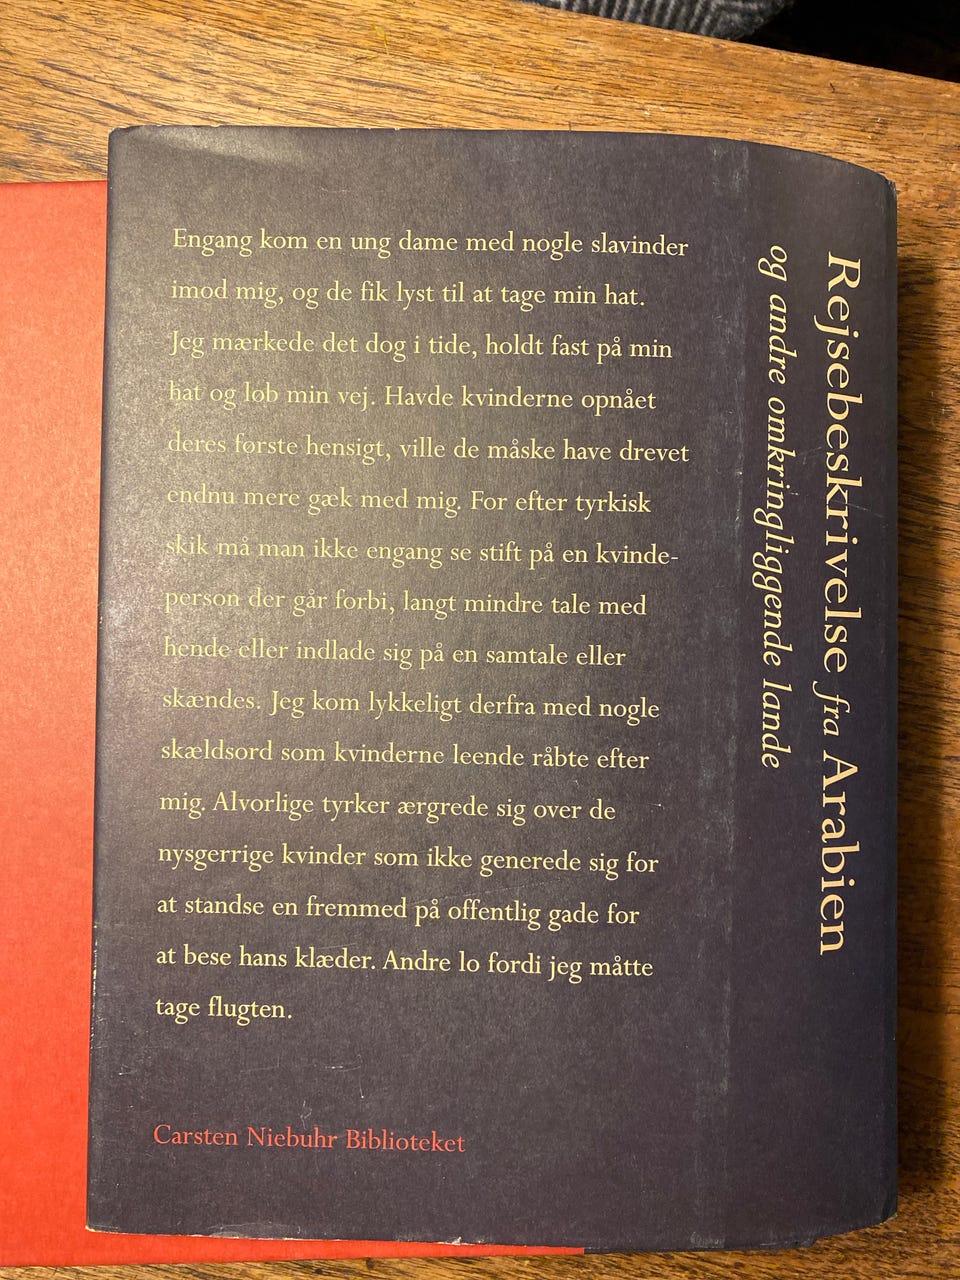 Engang kom en ung dame med nogle slavinder
imod mig, og de fik lyst til at tage min hat.
Jeg mærkede det dog i tide, holdt fast på min
hat og løb min vej. Havde kvinderne opnået
deres første hensigt, ville de måske have drevet
endnu mere gæk med mig. For efter tyrkisk
skik må man ikke engang se stift på en kvinde-
person der går forbi, langt mindre tale med
hende eller indlade sig på en samtale eller
skændes. Jeg kom lykkeligt derfra med nogle
skældsord som kvinderne leende råbte efter
mig. Alvorlige tyrker ærgrede sig over de
nysgerrige kvinder som ikke generede sig for
at standse en fremmed på offentlig gade for
at bese hans klæder. Andre lo fordi jeg måtte
tage flugten.
Carsten Niebuhr Biblioteket
Rejsebeskrivelse fra Arabien
og andre omkringliggende lande